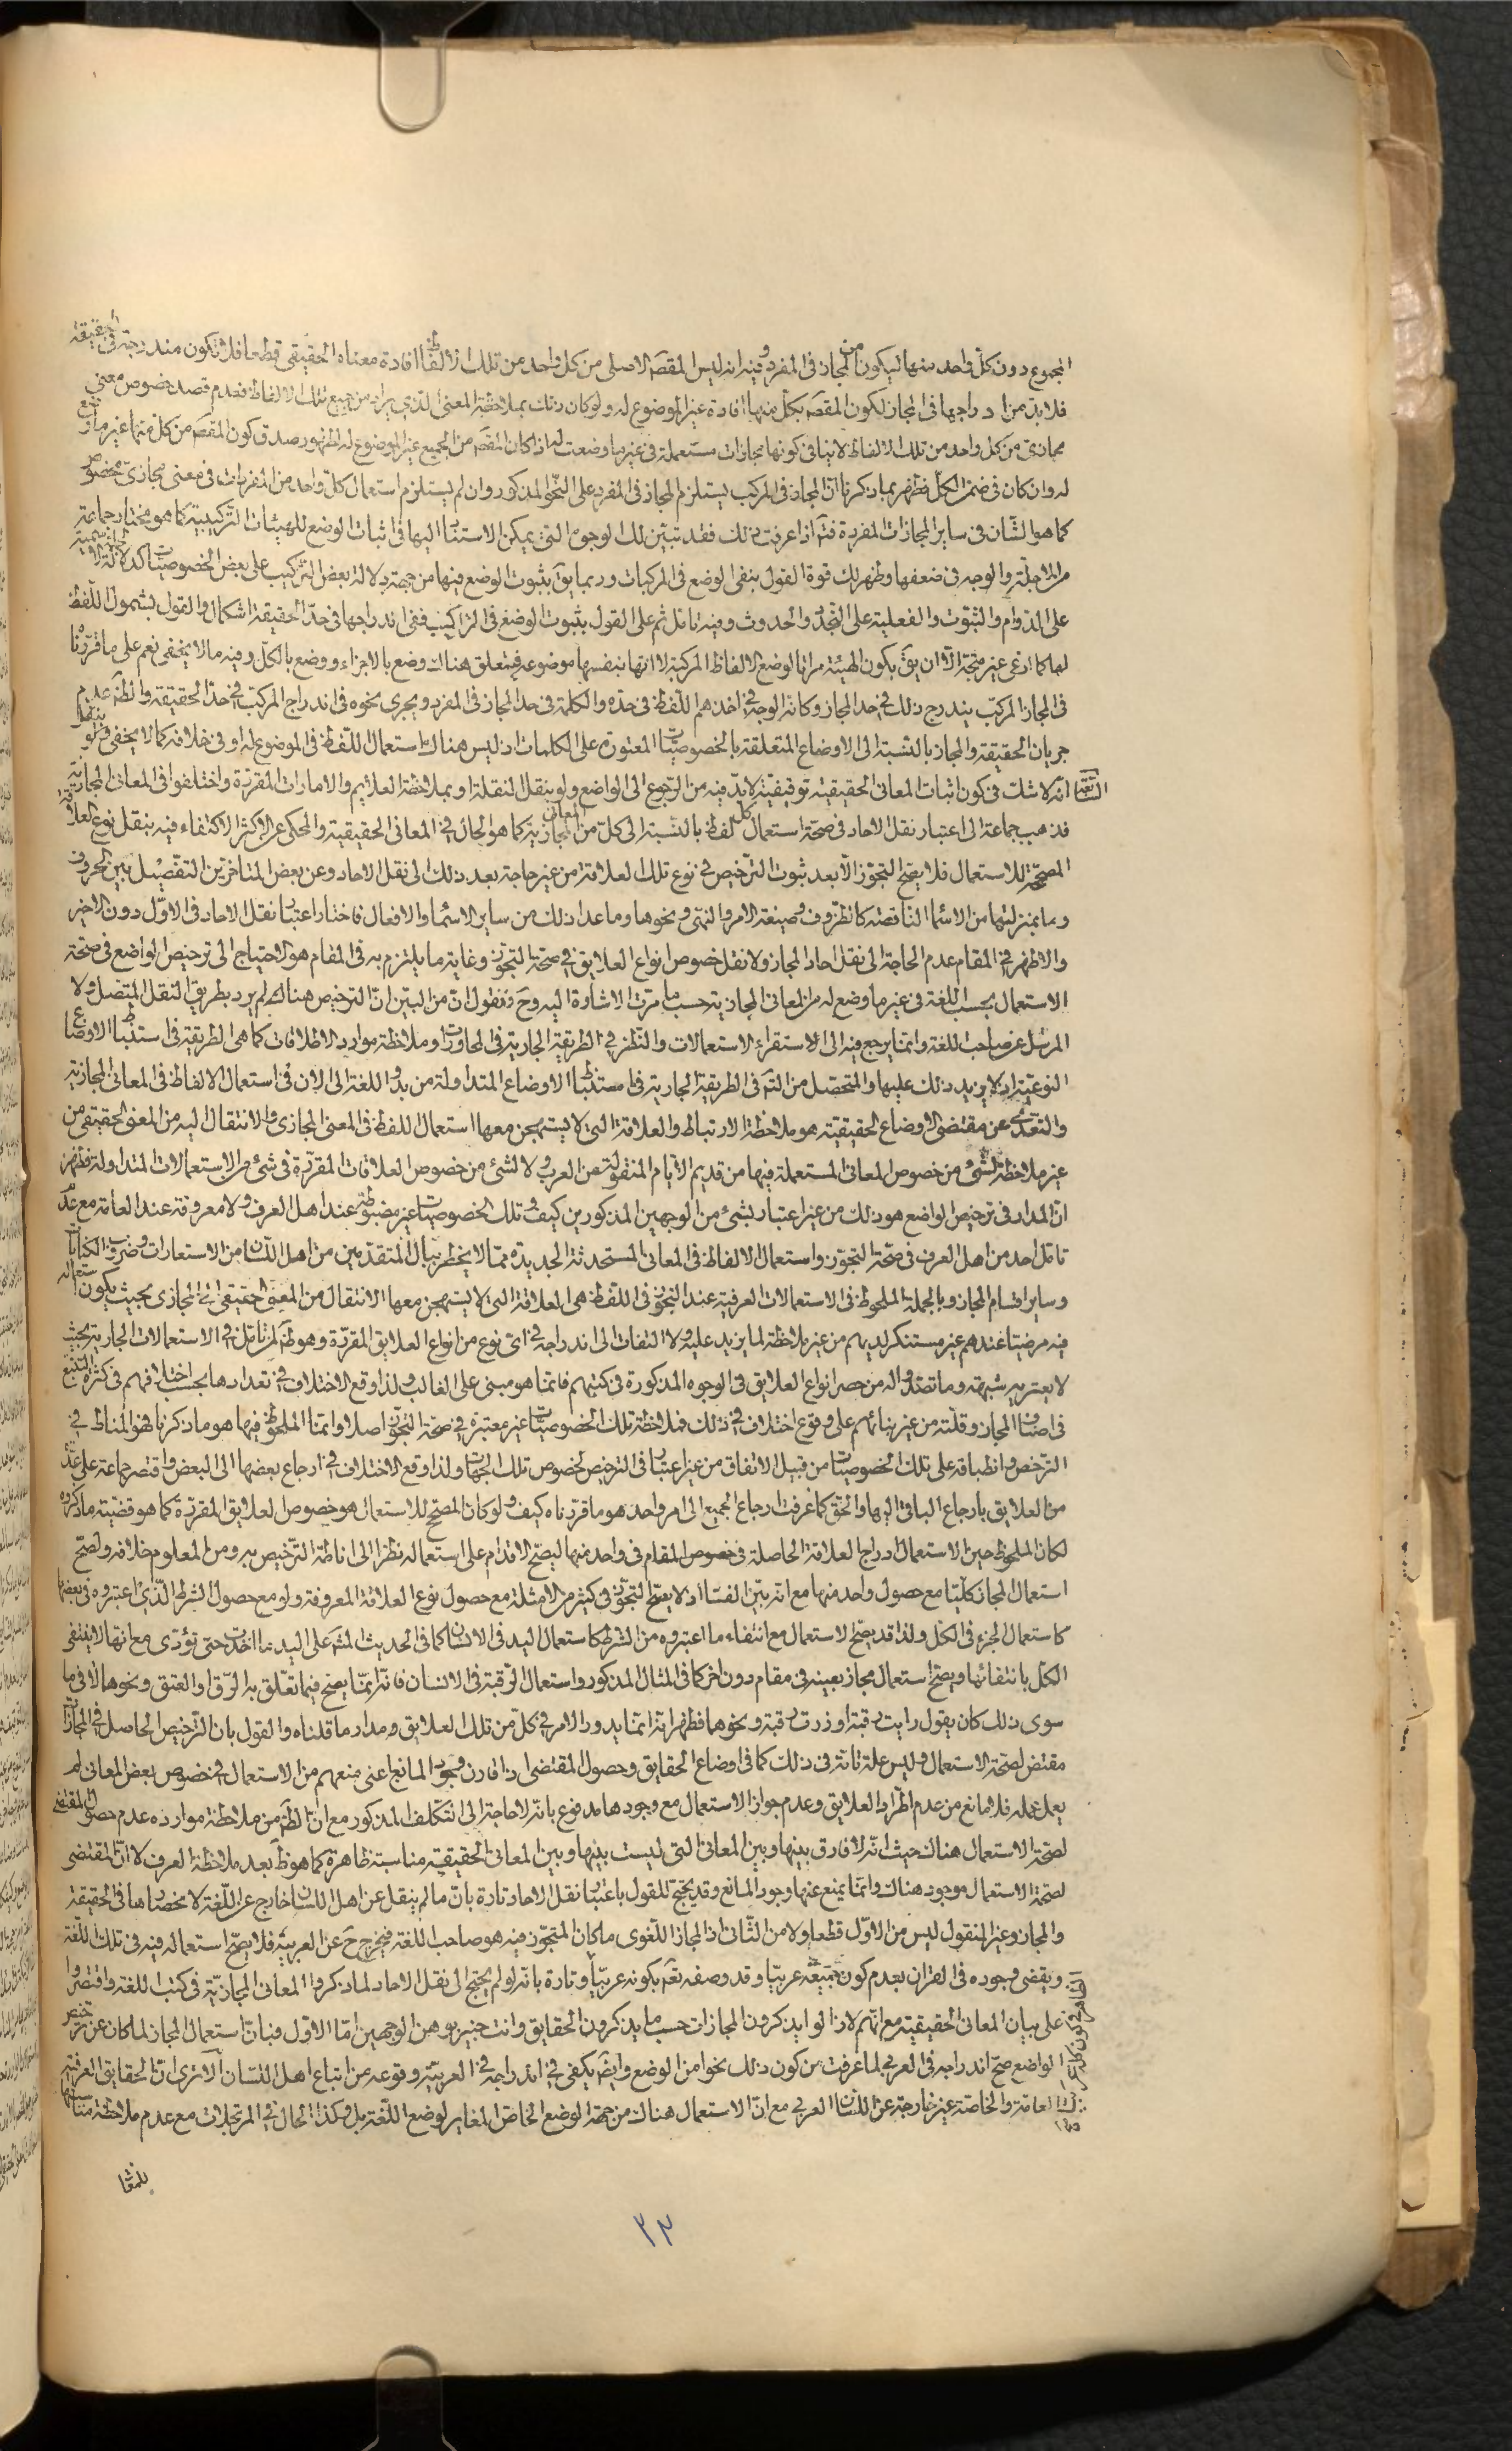 المجموع دون كلّ واحد منها ليكون من المجاز فى المفرد وفيه انه ليس المقصَ الاصلى من كل واحد من تلك الالفاظ افادة معناه الحقيقى قطعا فلا تكون مندرجة فى الحقيقة
فلا بدّ من ادراجها فى المجاز لكون المقصَ بكلّ منها افادة غير الموضوع له ولو كان ذلك بملاحظة المعنى الذى يراد من جميع تلك الالفاظ فعدم قصد خصوص معنى
مجازى من كل واحد من تلك الالفاظ لا ينافى كونها مجازات مستعملة فى غير ما وضعت له اذا كان المقصَ من الجميع غير الموضوع له لظهور صدق كون المقصَ من كل منها غير ما وضع
له وان كان فى ضمن الكلّ فظهر بما ذكرنا انّ المجاز فى المركب يستلزم المجاز فى المفرد على النحو المذكور وان لم يستلزم استعمال كلّ واحد من المفردات فى معنى مجازىّ مخصوص
كما هو الشأن فى ساير المجازات المفردة ثمّ اذا عرفت ذلك فقد تبيّن لك الوجوه التى يمكن الاستناد اليها فى اثبات الوضع للهيئات التركيبية كما هو مختار جماعة
من الاجلّة والوجه فى ضعفها وظهر لك قوة القول بنفى الوضع فى المركبات وربما يقَ بثبوت الوضع فيها من جهة دلالة بعض التركيب على بعض الخصوصيّات كدلالة الاسمية
على الدّوام والثبوت والفعلية على التجدّد والحدوث وفيه تامّل ثم على القول بثبوت الوضع فى التراكيب ففى اندراجها فى حدّ الحقيقة اشكال والقول بشمول اللّفظ
لها كما ادّعى غير متجه الّا ان يقَ بكون الهيئة مراتا لوضع الالفاظ المركبة لا انها بنفسها موضوعة فيتعلق هناك وضع بالاجزاء ووضع بالكلّ وفيه ما لا يخفى نعم على ما قرّرناه
فى المجاز المركّب يندرج ذلك فى حد المجاز وكانّ الوجه فى اخذهم اللّفظ فى حدّه والكلمة فى حد المجاز فى المفرد ويجرى نحوه فى اندراج المركّب فى حدّ الحقيقة والظّ عدم
جريان الحقيقة والمجاز بالنّسبة الى الاوضاع المتعلقة بالخصوصيّات المعتورة على الكلمات اذ ليس هناك استعمال اللّفظ فى الموضوع له او فى خلافه كما لا يخفى
التاسعة انّه لا شك فى كون اثبات المعانى الحقيقيّة توقيفيّة لا بدّ فيه من الرّجوع الى الواضع ولو بنقل النقلة او بملاحظة العلائم والامارات المقرّرة واختلفوا فى المعانى المجازيّة
فذهب جماعة الى اعتبار نقل الاحاد فى صحّة استعمال كل لفظ بالنّسبة الى كلّ من المعانى المجازيّة كما هو الحال فى المعانى الحقيقية والمحكى عن الاكثر الاكتفاء فيه بنقل نوع العلاقة
المصحّحة للاستعمال فلا يصحّ التجوّز الّا بعد ثبوت الترخيص فى نوع تلك العلاقة من غير حاجة بعد ذلك الى نقل الاحاد وعن بعض المتاخّرين التفصيل بين الحروف
وما بمنزلتها من الاسماء الناقصة كالظروف وصيغة الامر والنهى ونحوها وما عدا ذلك من ساير الاسماء والافعال فاختار اعتبار نقل الاحاد فى الاوّل دون الاخير
والاظهر فى المقام عدم الحاجة الى نقل احاد المجاز ولا نقل خصوص انواع العلايق فى صحّة التجوّز وغاية ما يلتزم به فى المقام هو الاحتياج الى ترخيص الواضع فى صحّة
الاستعمال بحسب اللغة فى غير ما وضع له من المعانى المجازية حسب ما مرّت الاشارة اليه وحَ فنقول انّ من البيّن انّ الترخيص هناك لم يرد بطريق النقل المتصل ولا
المرسل عن صاحب اللغة وانّما يرجع فيه الى الاستقراء الاستعمالات والنّظر فى الطريقة الجارية فى المحاورات او ملاحظة موارد الاطلاقات كما هى الطريقة فى استنباط الاوضاع
النوعيّة اذ لا يزيد ذلك عليها والمتحصّل من التتبّع فى الطريقة الجارية فى استنباط الاوضاع المتداولة من بدو اللغة الى الان فى استعمال الالفاظ فى المعانى المجازية
والتعدّى عن مقتضى الاوضاع الحقيقية هو ملاحظة الارتباط والعلاقة التى لا يستهجن معها استعمال اللفظ فى المعنى المجازى والانتقال اليه من المعنى الحقيقى من
غير ملاحظة لشئ من خصوص المعانى المستعملة فيها من قديم الايام المنقولة عن العرب ولا لشئ من خصوص العلاقات المقرّرة فى شئ من الاستعمالات المتداولة فظهر
انّ المدار فى ترخيص الواضع هو ذلك من غير اعتبار لشئ من الوجهين المذكورين كيف وتلك الخصوصيّات غير مضبوطة عند اهل العرف ولا معروفة عند العامّة مع عدم
تامّل احد من اهل العرف فى صحّة التجوّز واستعمال الالفاظ فى المعانى المستحدثة الجديدة ممّا لا يخطر ببال المتقدّمين من اهل اللّسان من الاستعارات وضروب الكنايات
وساير اقسام المجاز وبالجملة الملحوظ فى الاستعمالات العرفية عند التجوّز فى اللّفظ هى العلاقة التى لا يستهجن معها الانتقال من المعنى الحقيقى الى المجازى بحيث يكون استعماله
فيه مرضيّا عندهم غير مستنكر لديهم من غير ملاحظة لما يزيد عليه ولا التفات الى اندراجه فى اىّ نوع من انواع العلايق المقرّرة وهو ظَ لمن تامّل فى الاستعمالات الجارية بحيث
لا يعتريه شبهة وما تصدّوا له من حصر انواع العلايق فى الوجوه المذكورة فى كتبهم فانّما هو مبنى على الغالب ولذا وقع الاختلاف فى تعدادها بحسب اختلافهم فى كثرة التتبّع
فى اصناف المجاز وقلّته من غير بنائهم على وقوع اختلاف فى ذلك فملاحظة تلك الخصوصيّات غير معتبرة فى صحّة التجوّز اصلا وانّما الملحوظ فيها هو ما ذكرنا فهو المناط فى
الترخّص وانطباقه على تلك الخصوصيّات من قبيل الاتفاق من غير اعتبار فى الترخيص لخصوص تلك الجهات ولذا وقع الاختلاف فى ارجاع بعضها الى البعض واقتصر جماعة على عدّة
من العلايق بارجاع الباقى اليها والحقّ كما عرفت ارجاع الجميع الى امر واحد هو ما قرّرناه كيف ولو كان المصحّح للاستعمال هو خصوص العلايق المقرّرة كما هو قضيّة ما ذكروه
لكان الملحوظ حين الاستعمال ادراج العلاقة الحاصلة فى خصوص المقام فى واحد منها ليصحّ الاقدام على استعماله نظرا الى اناطة الترخيص به ومن المعلوم خلافه ولصحّ
استعمال المجاز كلّيا مع حصول واحد منها مع انّه بيّن الفساد اذ لا يصحّ التجوّز فى كثير من الامثلة مع حصول نوع العلاقة المعروفة ولو مع حصول الشرط الذى اعتبروه فى بعضها
كاستعمال الجزء فى الكلّ ولذا قد يصحّ الاستعمال مع انتفاء ما اعتبروه من الشرط كاستعمال اليد فى الانسان كما فى الحديث المشهور على اليد ما اخذت حتى تؤدّى مع انها لا ينتفى
الكلّ بانتفائها ويصحّ استعمال مجاز بعينه فى مقام دون اخر كما فى المثال المذكور واستعمال الرّقبة فى الانسان فانّه انّما يصحّ فيما تعلّق به الرّق او العتق ونحوها لا فى ما
سوى ذلك كان يقول رايت رقبة او زرت رقبة ونحوهما فظهر انّه انّما يدور الامر فى كلّ من تلك العلايق مدار ما قلناه والقول بان الترخيص الحاصل فى المجازات
مقتض لصحّة الاستعمال وليس علة تامّة فى ذلك كما فى اوضاع الحقايق وحصول المقتضى اذا قارن وجود المانع اعنى منعهم من الاستعمال فى خصوص بعض المعانى لم
يعمل عمله فلا مانع من عدم اطّراد العلايق وعدم جواز الاستعمال مع وجودها مدفوع بانّه لا حاجة الى التكلّف المذكور مع انّ الظّ من ملاحظة موارده عدم حصول المقتضى
لصحّة الاستعمال هناك حيث انّه لا فارق بينها وبين المعانى التى ليست بينها وبين المعانى الحقيقية مناسبة ظاهرة كما هو ظَ بعد ملاحظة العرف لا انّ المقتضى
لصحّة الاستعمال موجود هناك وانّما يمنع عنها وجود المانع وقد يحتجّ للقول باعتبار نقل الاحاد تارة بانّ ما لم ينقل عن اهل اللسان خارج عن اللّغة لانحصارها فى الحقيقة
والمجاز وغير المنقول ليس من الاوّل قطعا ولا من الثّانى اذ المجاز اللّغوى ما كان المتجوّز فيه هو صاحب اللغة فيخرج حَ عن العربيّة فلا يصحّ استعماله فيه فى تلك اللّغة
ويقضى وجوده فى القران بعدم كون جميعه عربيّا وقد وصفه تعَ بكونه عربيّا وتارة بانّه لو لم يحتج الى نقل الاحاد لما ذكروا المعانى المجازيّة فى كتب اللغة واقتصروا
على بيان المعانى الحقيقية مع انّهم لا زالوا يذكرون المجازات حسب ما يذكرون الحقايق وانت خبير بوهن الوجهين امّا الاوّل فبانّ استعمال المجاز لما كان عن ترخيص
الواضع صحّ اندراجه فى العربى لما عرفت من كون ذلك نحوا من الوضع وايضَ يكفى فى اندراجه فى العربيّة وقوعه من اتباع اهل اللسان الا ترى انّ الحقايق العرفيّة
العامّة والخاصّة غير خارجة عن اللسان العربى مع انّ الاستعمال هناك من جهة الوضع الخاصّ المغاير لوضع اللّغة بل وكذا الحال فى المرتجلات مع عدم ملاحظة مناسبتها
للمعنى
٣٣